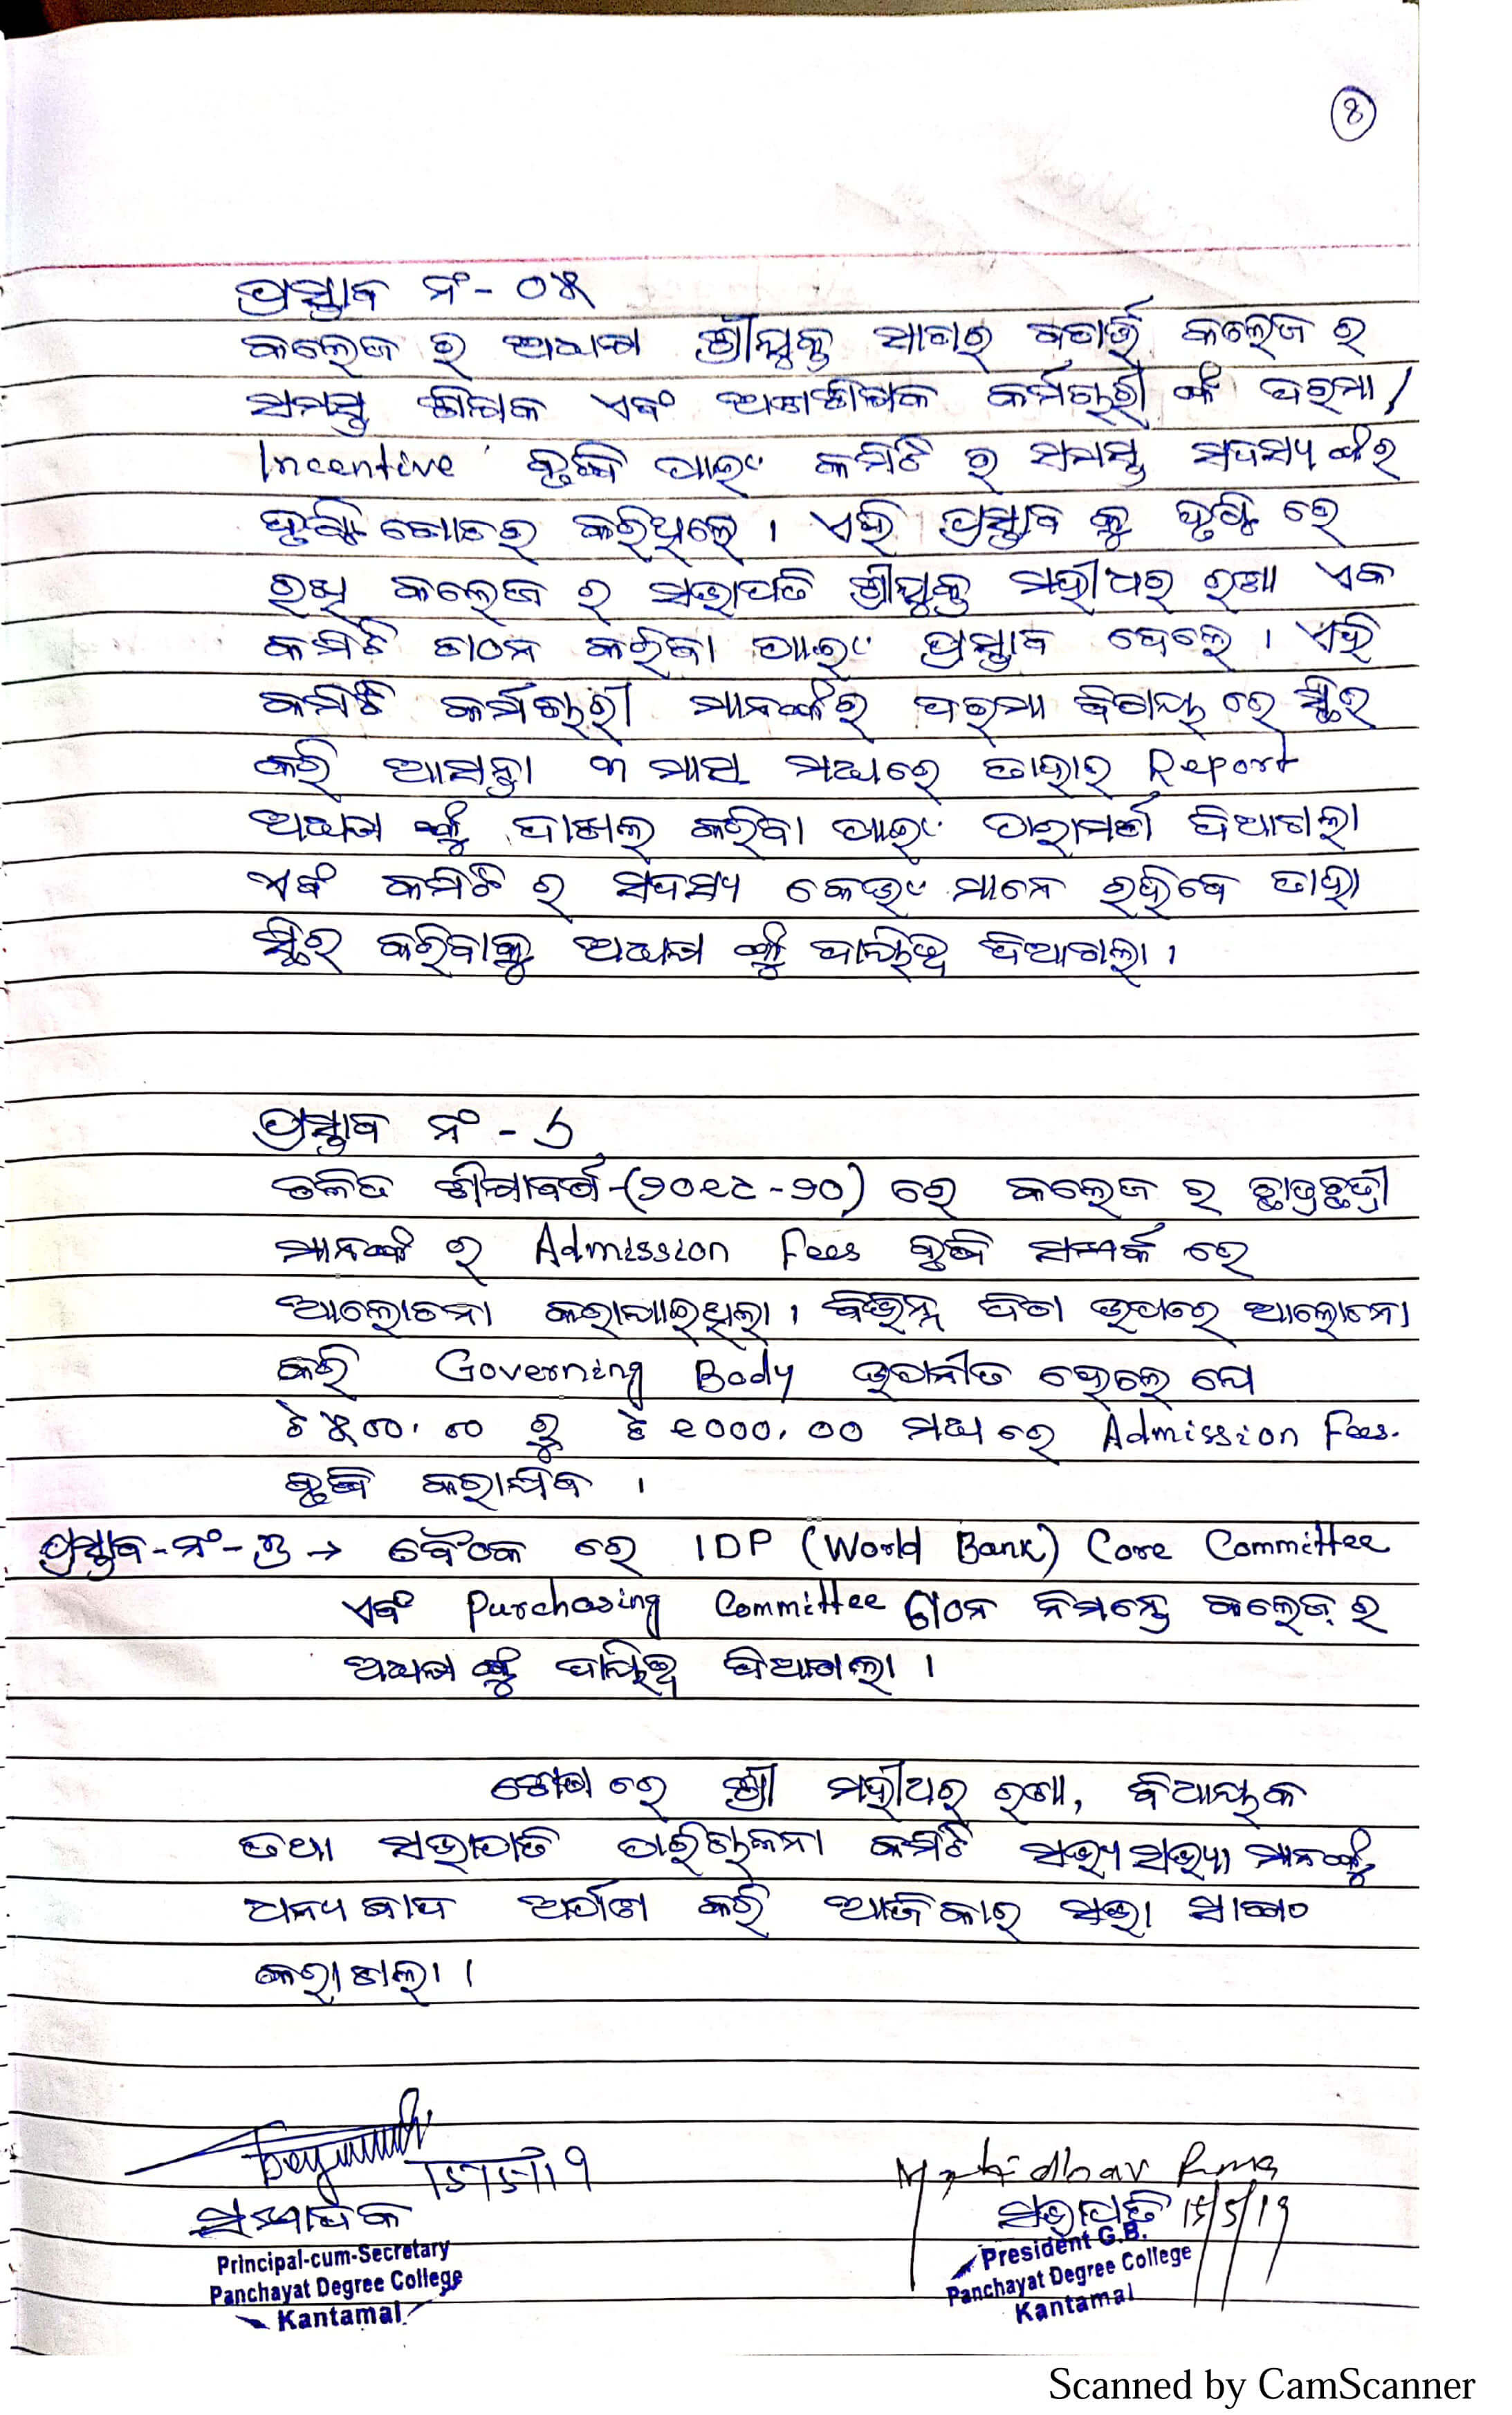 ୪
ପ୍ରସ୍ତାବ ନଂ - ୦୫
କଲେଜ ର ଅଧ୍ୟକ୍ଷ ଶ୍ରୀଯୁକ୍ତ ସାଗର କଲେଜ ର
ସମସ୍ତ ଶିକ୍ଷକ ଏବଂ ଅଣଶିକ୍ଷକ କର୍ମଚାରୀ ଙ୍କ ଦରମା /
Incentive ବୃଦ୍ଧି ପାଇଂ କମିଟି ର ସମସ୍ତ ସଦସ୍ୟ ଙ୍କର
ଦୃଷ୍ଟି ଗୋଚର କରିଥିଲେ । ଏହି ପ୍ରସ୍ତାବ କୁ ଦୃଷ୍ଟି ରେ
ରଖି କଲେଜ ର ସଭାପତି ଶ୍ରୀଯୁକ୍ତ ମହୀଧର ରଣା ଏକ
କମିଟି ଗଠନ କରିବା ପାଇଂ ପ୍ରସ୍ତାବ ଦେଲେ । ଏହି
କମିଟି କର୍ମଚାରୀ ମାନଙ୍କର ଦରମା ବିଷୟ ରେ ସ୍ଥିର
କରି ଆସନ୍ତା ୩ ମାସ ମଧ୍ୟରେ ତାହାର Report
ଅଧ୍ୟକ୍ଷ ଙ୍କୁ ଦାଖଲ କରିବା ପାଇଂ ପରାମର୍ଶ ଦିଆଗଲା
ଏବଂ କମିଟି ର ସଦସ୍ୟ କେଉଂ ମାନେ ରହିବେ ତାହା
ସ୍ଥିର କରିବାକୁ ଅଧ୍ୟକ୍ଷ ଙ୍କୁ ଦାୟିତ୍ୱ ଦିଆଗଲା ।
ପ୍ରସ୍ତାବ ନଂ - ୬
ଚଳିତ ଶିକ୍ଷାବର୍ଷ - (୨୦୧୯ - ୨୦) ରେ କଲେଜ ର ଛାତ୍ରଛତ୍ରୀ
ମାନଙ୍କ ର Admission Fees ବୃଦ୍ଧି ସମ୍ପର୍କ ରେ
ଆଲୋଚନା କରାଯାଇଥିଲା । ବିଭିନ୍ନ ଦିଗ ଉପରେ ଆଲୋଚନା
କରି Governing Body ଉପନୀତ ହେଲେ ଯେ
ଟ ୫୦୦.୦୦ ରୁ ଟ ୧୦୦୦.୦୦ ମଧ୍ୟ ରେ Admission Fees.
ବୃଦ୍ଧି କରାଯିବ ।
ପ୍ରସ୍ତାବ - ନଂ - ୭ → ବୈଠକ ରେ IDP (World Bank) Core Committee
ଏବଂ Purchasing Committee ଗଠନ ନିମନ୍ତେ କଲେଜ୍ ର
ଅଧ୍ୟକ୍ଷ ଙ୍କୁ ଦାୟିତ୍ୱ ଦିଆଗଲା ।
ଶେଷ ରେ ଶ୍ରୀ ମହୀଧର ରଣା, ବିଧାୟକ
ତଥା ସଭାପତି ପରିଚାଳନା କମିଟି ସଭ୍ୟ ସଭ୍ୟା ମାନଙ୍କୁ
ଧନ୍ୟବାଦ ଅର୍ପଣ କରି ଆଜିକାର ସଭା ସାଙ୍ଗ
କରାଗଲା ।
Mahidhar Rana
ସମ୍ପାଦକ
ସଭାପତି 15/5/19
Principal-cum-Secretary
Panchayat Degree College
Kantamal
President G.B.
Panchayat Degree College
Kantamal
Scanned by CamScanner